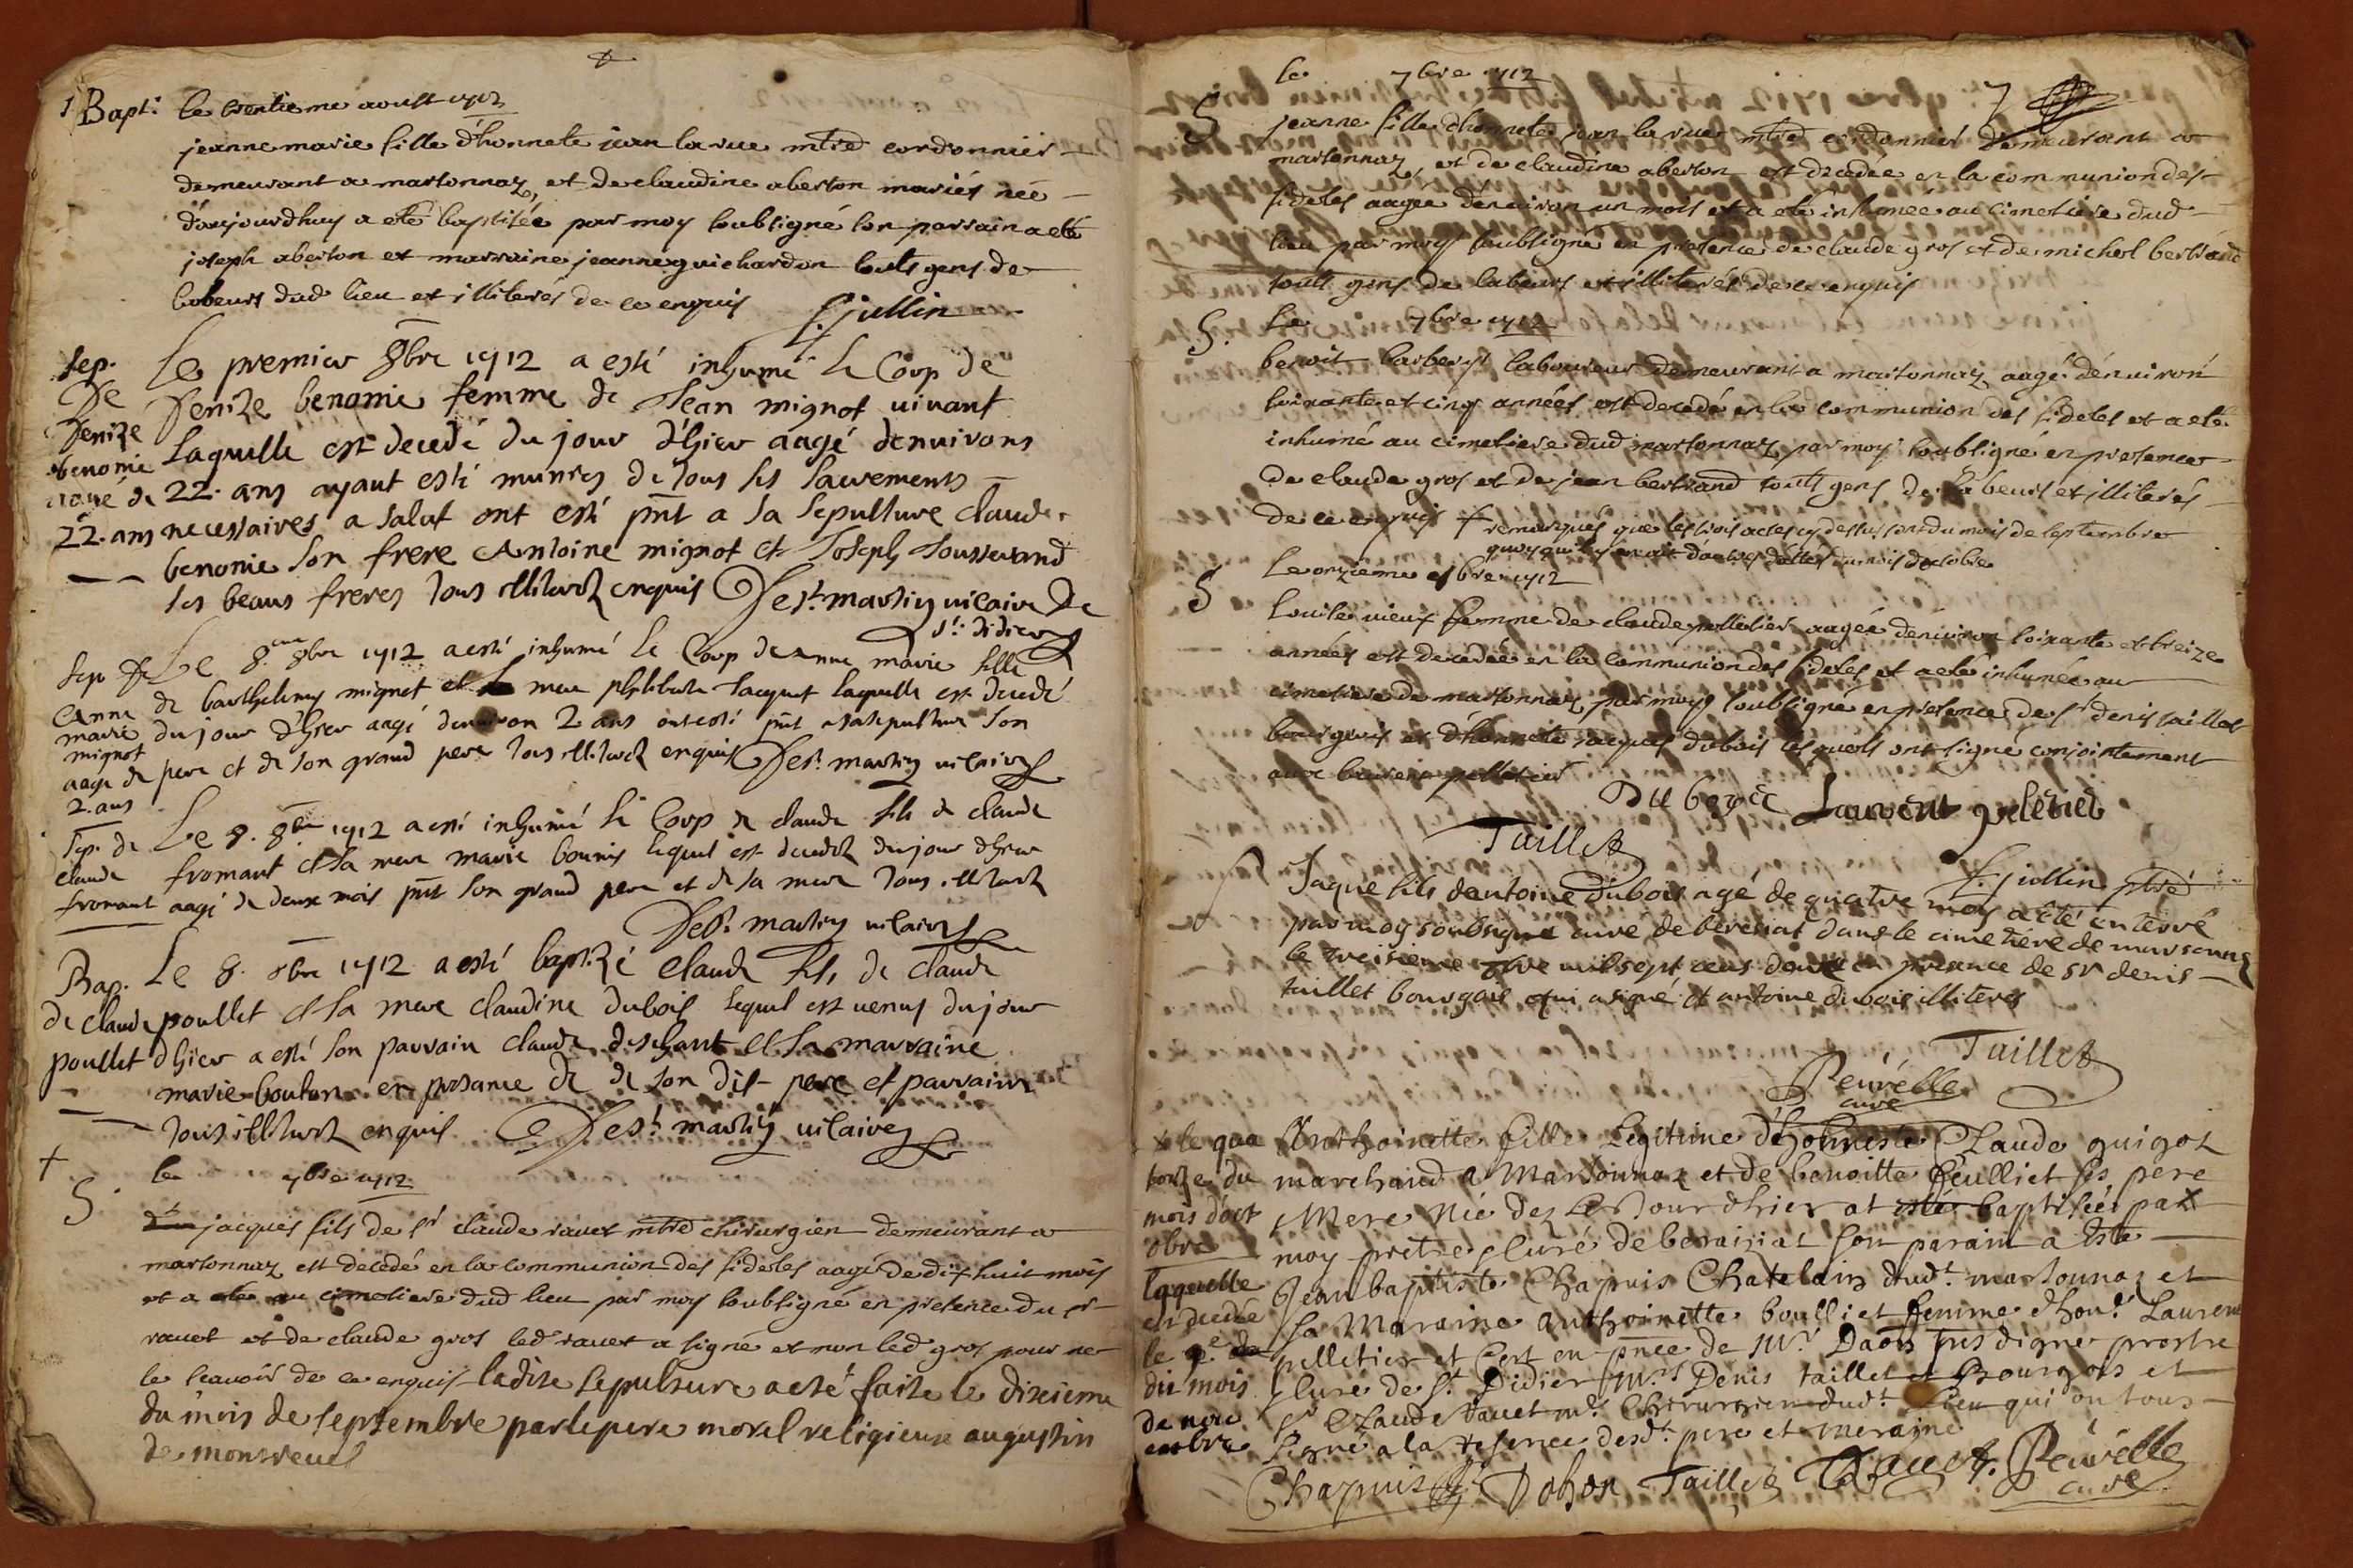 1 Bapt: le trentieme aoust 1712
jeanne marie fille d'honnete jean la rue mtre cordonnier
demeurant a marsonnaz et de claudine aberton mariés née
d'aujourdhuy a eté baptisée par moy soubsigné son parrain a eté
joseph aberton et marraine jeanne guichardon touts gens de
labeurs dud lieu et illiterés de ce enquis f. jullin
Sep. Le premier 8bre 1712 a esté inhumé le Corp de
De Denize benonie femme de Jean mignot vivant
Denize Laquelle est decedé du jour d'hier aagé denvirons
benonie
aagé de 22. ans ayant esté munies de tous les sacrements
22. ans necessaires a salut ont esté pnt a sa sepulture claude
benonie son frere Antoine mignot et Joseph
ses beaus freres tous illiterez enquis De st. martin vicaire De
st. didier
Sep de Le 8. 8bre 1712 a esté inhumé le Corp de anne marie fille
Anne de barthelemy mignot et mere philiberte Jacquet laquelle est decedé
marie du jour d'hier aagé denviron 2 ans ont esté pnt a sa sepulture son
mignot
aagé de pere et de son grand pere tous illiterez enquis De st. martin vicaire
2. ans
Sep. de Le 8. 8bre 1712 a esté inhumé le Corp de claude fils de claude
claude fromant et sa mere marie bounis lequel est decedez du jour dhier
fromant aagé de deux mois pnt son grand pere et de sa mere tous illiterez
De st. martin vicaire
Bap. Le 8. 8bre 1712 a esté baptizé claude fils de claude
de claude poullet et sa mere claudine dubois lequel est venus du jour
poullet dhier a esté son parrain claude deschant et sa marraine
marie bouton en presance de de son dit pere et parrains
tous illiterez enquis De st. martin vicaire
+ le 7bre 1712
S. jacques fils de sr claude ravet mtre chirurgien demeurant a
marsonnaz est decedé en la communion des fideles aagé de dix huit mois
et a eté au cimetiere dud lieu par moy soubsigné en presence du sr
ravet et de claude gros led ravet a signé et non led gros pour ne
le scavoir de ce enquis ladite sepulture a eté faite le dixieme
du mois de septembre par le pere morel religieux augustin
de monreuel
le 7bre 1712 7
S jeanne fille d'honnete jean la rue mtre cordonnier demeurant a
marsonnaz et de claudine aberton est decedée en la communion des
fideles aagée d'environ un mois et a eté inhumée au cimetiere dud
lieu par moy soubsigné en presence de claude gros et de michel bertrand
touts gens de labeurs et illiterés de ce enquis
Le 7bre 1712
S. benoit barberet laboureur demeurant a marsonnaz aagé d'environ
soixante et cinq années est decedé en la communion des fideles et a eté
inhumé au cimetiere dud marsonnaz par moy soubsigné en presence
de claude gros et de jean bertrand touts gens de labeurs et illiterés
de ce enquis + remarqués que les trois actes cy dessus sont du mois de septembre
quoyqu'il y en ait d'autres dattés du mois d'octobre
Le onzieme 8bre 1712
S Louise vieux femme de claude pelletier aagée d'environ soixante et treize
années est decedée en la communion des fideles et a eté inhumée au
cimetiere de marsonnaz par moy soubsigné en presence de sr denis taillet
bourgeois et d'honnete jacques dubois lesquels ont signé conjointement
avec laurent pelletier
Du boys Laurent peletier
Taillet
f. jullin ptre
S Jaque fils dantoine dubois agé de quatre moys a été enterré
par moy soubsigné curé de bereisiat dans le cimetiere de marsonnas
le treisieme 8bre mil sept cens douze en presence de sr denis
taillet bourgois qui a signé et antoine dubois illiteres
Taillet
Peuvelle
curé
+ le qua Anthoinette fille Legitime d'honneste Claude guigoz
torze du marchand a Marsonnaz et de benoitte feulliet ses pere
mois d'oct et Mere Née dez Le Jour dhier at estée baptisée par
obre moy pretre Curé de bereiziat son parain a este
laquelle Jean baptiste Chapuis Chatelain dudt. marsonnaz et
est decedée sa Maraine anthoinette boulliet femme d'hont. Laurent
le 9e. pelletier et C'ert en pnce de Mr. Daon tres digne prestre
du mois Curé de St. Didier Mrs Denis taillet Bourgois et
de nove Sr Claude Ravet me. Chirurgien dudt. Lieu qui on tous
embre Signé a la reserve desdt. pere et meraine
Chapuis Dohon Taillet Ravet. Peuvelle
curé